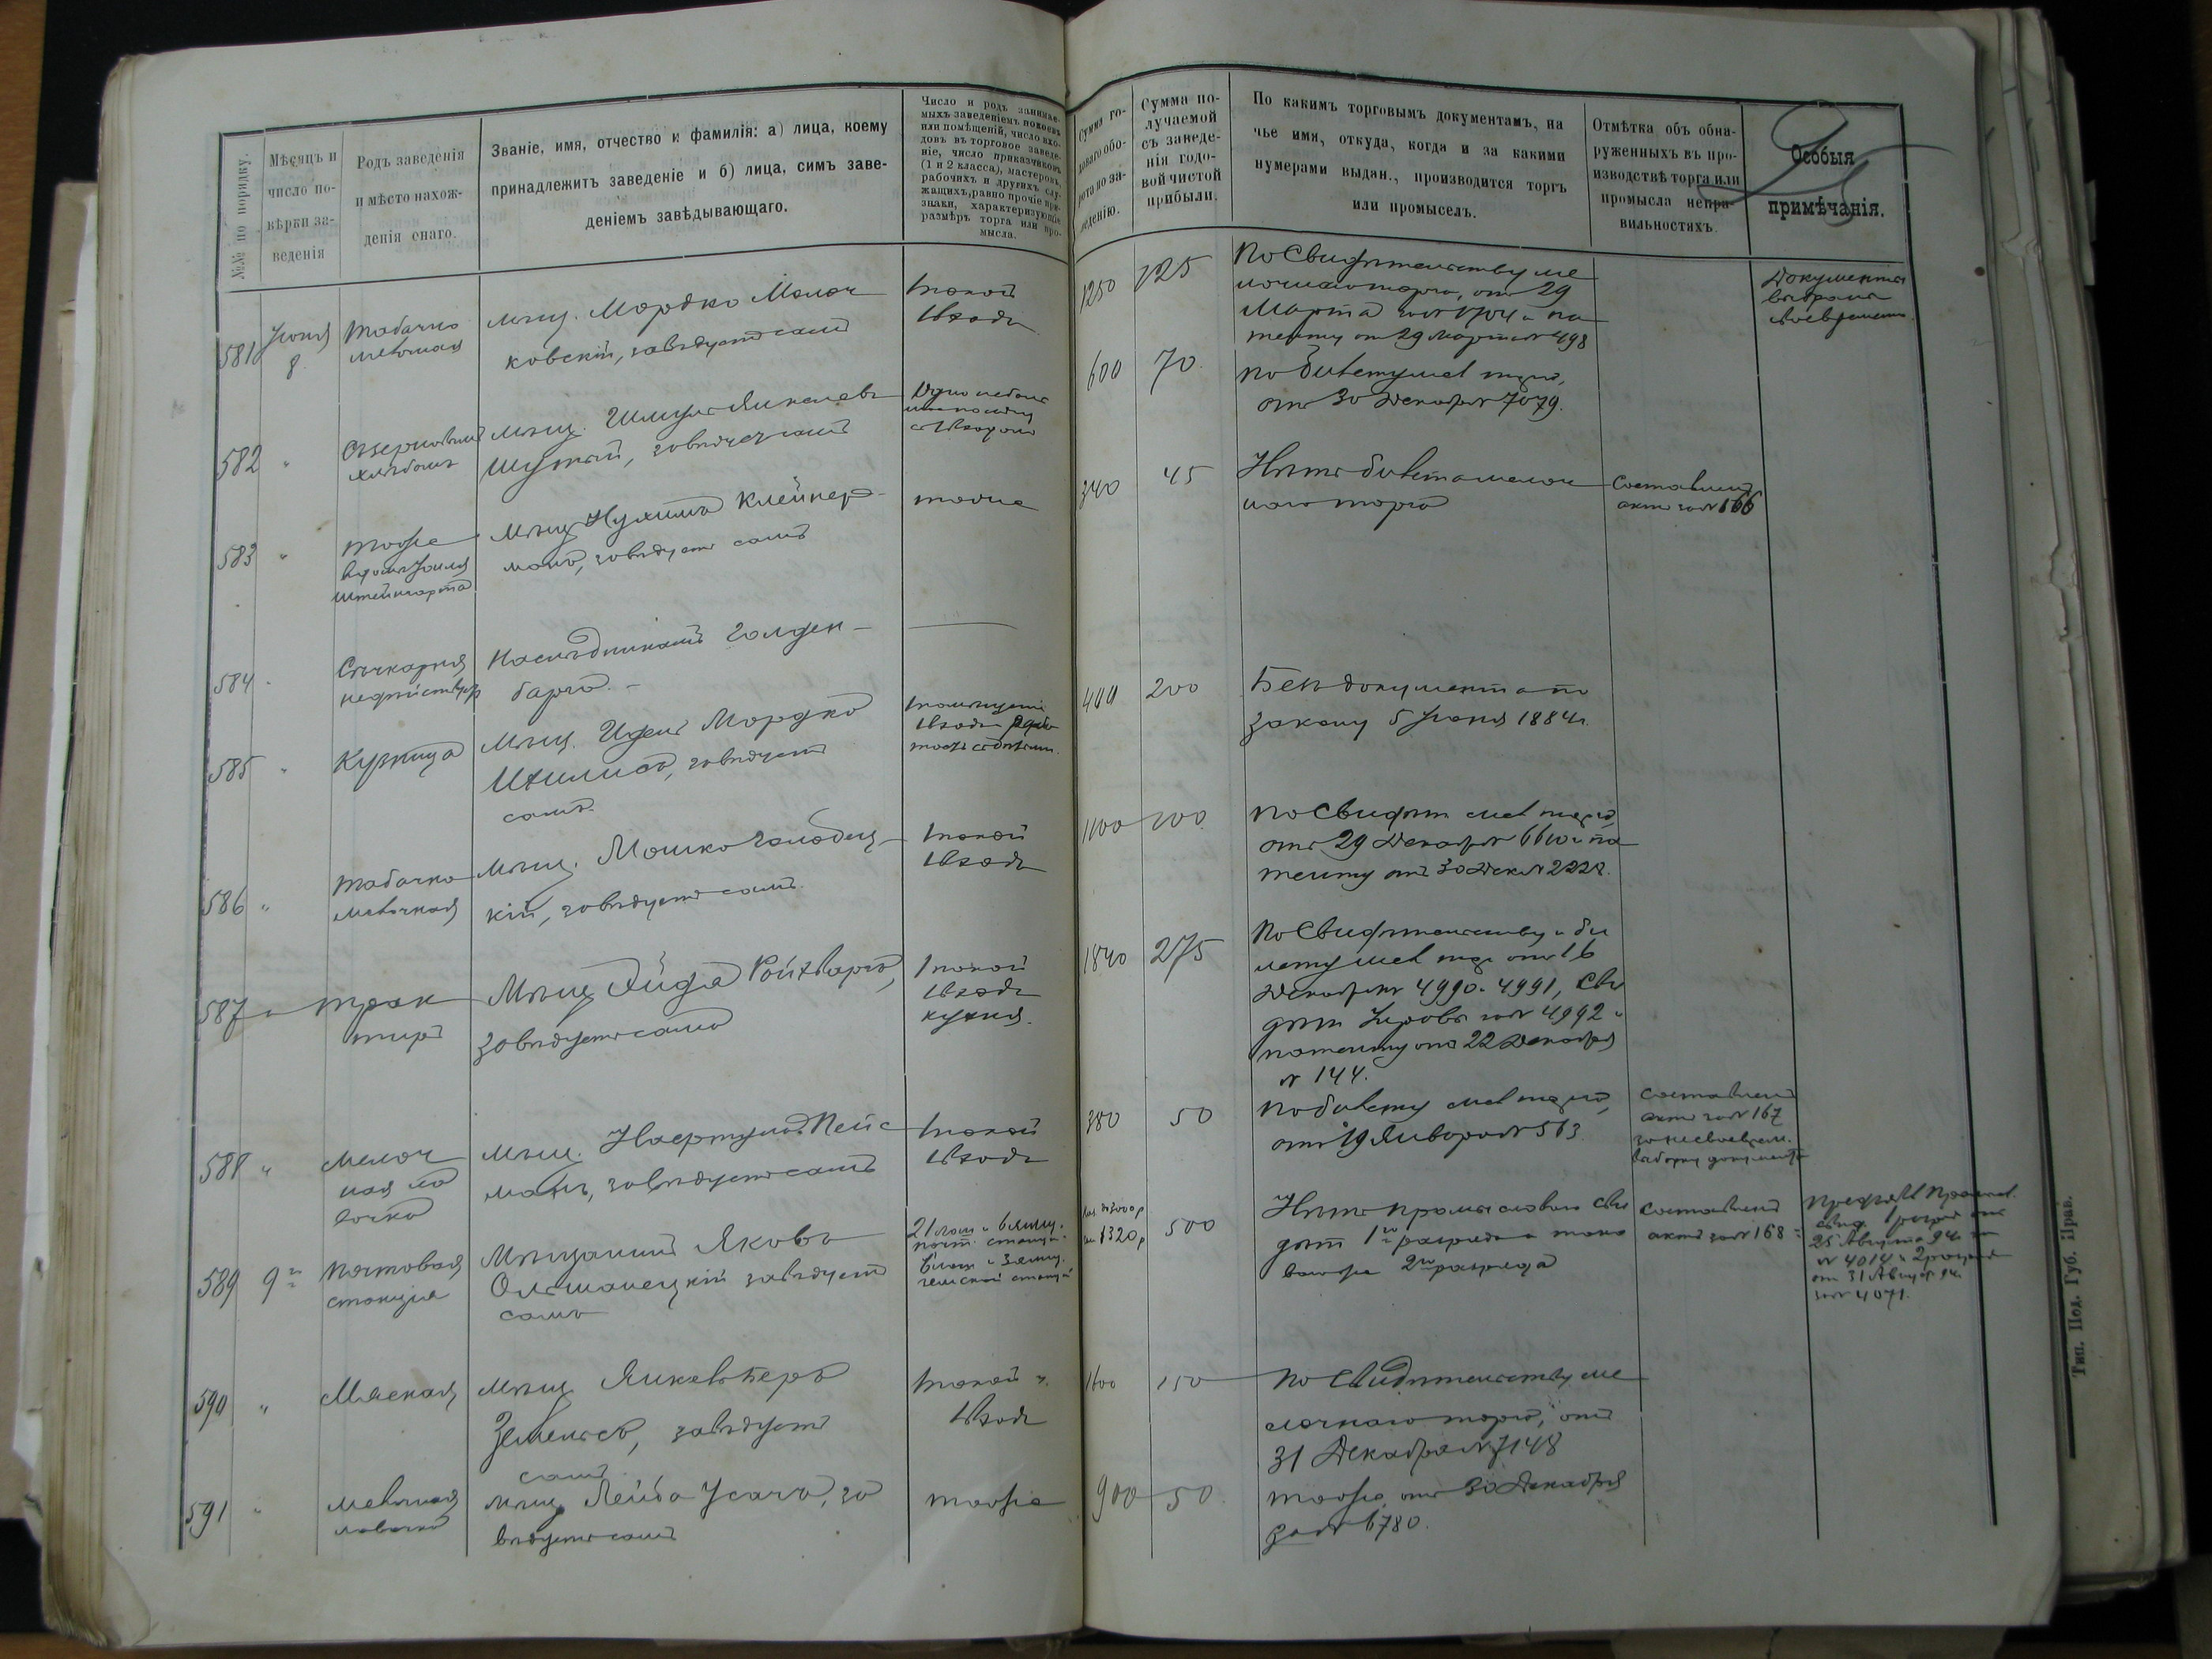 №№ по порядку.
Мѣсяцъ и
число по-
вѣрки за-
веденія
Родъ заведенія
и мѣсто нахож-
денія онаго.
Званіе, имя, отчество и фамилія: а) лица, коему
принадлежитъ заведеніе и б) лица, симъ заве-
деніемъ завѣдывающаго.
Число и родъ занимае-
мыхъ заведеніемъ покоевъ
или помѣщеній, число вхо-
довъ въ торговое заведе-
ніе, число приказчиковъ
(1 и 2 класса), мастеровъ,
рабочихъ и другихъ слу-
жащихъ, равно прочіе при-
знаки, характеризующіе
размѣръ торга или про-
мысла.
Сумма го-
доваго обо-
рота по за-
веденію.
Сумма по-
лучаемой
съ заведе-
нія годо-
вой чистой
прибыли.
По какимъ торговымъ документамъ, на
чье имя, откуда, когда и за какими
нумерами выдан., производится торгъ
или промыселъ.
Отмѣтка объ обна-
руженныхъ въ про-
изводствѣ торга или
промысла непра-
вильностяхъ.
Особыя
примѣчанія.
581
Іюня
8
Табачно
мѣщ. Мордко Молоч
ковскій, завѣдуетъ самъ
1 покой
1 входъ
1250
125
По Свидѣтельству ме
лочнаго торга, отъ 29
Марта за № 1704 и па
тенту отъ 29 Марта № 498
Документы
выбраны
своевременно.
582
"
хлѣбомъ
мѣщ. Шмуль Янкелевъ
завѣдуетъ самъ
600
70
по билету мел торга,
отъ 30 Декабря № 7079.
583
"
тоже
в домѣ Хаима
Штейнгарта
мѣщ Нухимъ Клейнер-
манъ, завѣдуетъ самъ
тоже
340
45
Нѣтъ билета мелоч
наго торга
Составленъ
актъ за № 166
584
"
недѣйствуетъ
Наслѣдникамъ Голден-
барга.
585
"
Кузница
мѣщ. Мордко
завѣдуетъ
самъ.
1 помѣщеніе
1 входъ
400
200
Безъ документа по
закону 5 Іюня 1884 г.
586
"
Табачно
лавочная
мѣщ. Мошко Голодец-
кій, завѣдуетъ самъ.
1 покой
1 входъ
1100
200
По Свидѣт мел торга,
отъ 29 Декабря № 6610 и па
тенту отъ 30 Дек № 2228.
587
"
трак
тиръ
мѣщ Ройзваргъ,
завѣдуетъ сама
1 покой
1 входъ
кухня.
1840
275
По Свидѣтельству и би
лету мел торг отъ 16
Декабря № 4990 и 4991, Сви
дѣт за № 4992 и
патенту отъ 22 Декабря
№ 144.
588
"
мелоч
ная ла
вочка
мѣщ. Нафтула Пейс
махъ, завѣдуетъ самъ
1 покой
1 входъ
380
50
по билету мел торга,
отъ 19 Января № 513.
Составленъ
актъ за № 167
за несвоеврем.
выборку документа
589
9 го
почтовая
станція
Мѣщанинъ Яковъ
Ольшанецкій завѣдуетъ
самъ
21 лош и 6 ямщ.
почт. станціи.
6 лош и 3 ямщ.
земской станціи
500
Нѣтъ промысловаго Сви
дѣт 1 го разряда и тако
ваго же 2 го разряда
Составленъ
актъ за № 168
25 Августа 94 г. за
№ 4014 и 2 разряда
от 31 Августа 94 г.
за № 4071.
590
"
Мясная
мѣщ. Янкель Беръ
завѣдуетъ
самъ
1 покой и
1 входъ
1600
150
По Свидѣтельству ме
лочнаго торга, отъ
31 Декабря № 7148
591
"
мелочная
лавочка
мѣщ Лейба Усачъ, за
вѣдуетъ самъ
тоже
900
50
тоже отъ 30 Декабря
за № 6780.
Тип. Под. Губ. Прав.